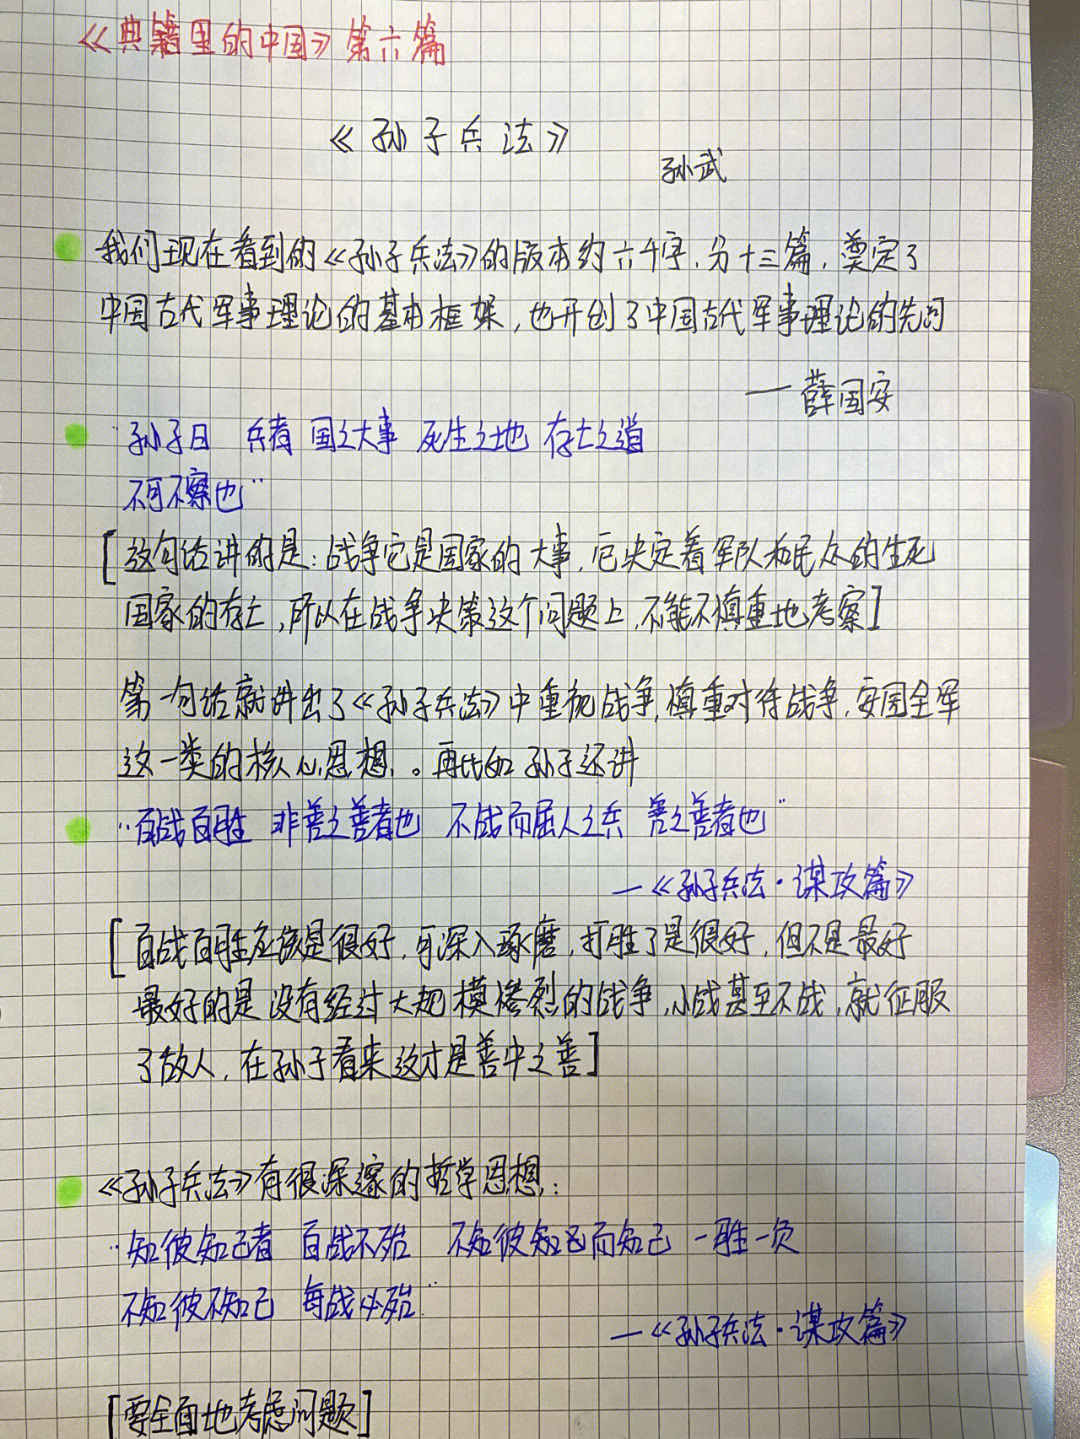 《典籍里的中国》第六篇
《孙子兵法》
孙武
我们现在看到的《孙子兵法》的版本约六千字，分十三篇，奠定了
中国古代军事理论的基本框架，也开创了中国古代军事理论的先河
——薛国安
“孙子曰 兵者 国之大事 死生之地 存亡之道
不可不察也”
[这句话讲的是：战争它是国家的大事，它决定着军队和民众的生死
国家的存亡，所以在战争决策这个问题上，不能不慎重地考察]
第一句话就讲出了《孙子兵法》中重视战争，慎重对待战争，安国全军
这一类的核心思想，。再比如 孙子还讲
“百战百胜 非善之善者也 不战而屈人之兵 善之善者也”
—《孙子兵法·谋攻篇》
[百战百胜应该是很好，可深入琢磨，打胜了是很好，但不是最好
最好的是没有经过大规模惨烈的战争，小战甚至不战，就征服
了敌人，在孙子看来这才是善中之善]
《孙子兵法》有很深邃的哲学思想：
“知彼知己者 百战不殆 不知彼知己而知己 一胜一负
不知彼不知己 每战必殆”
—《孙子兵法·谋攻篇》
[要全面地考虑问题]